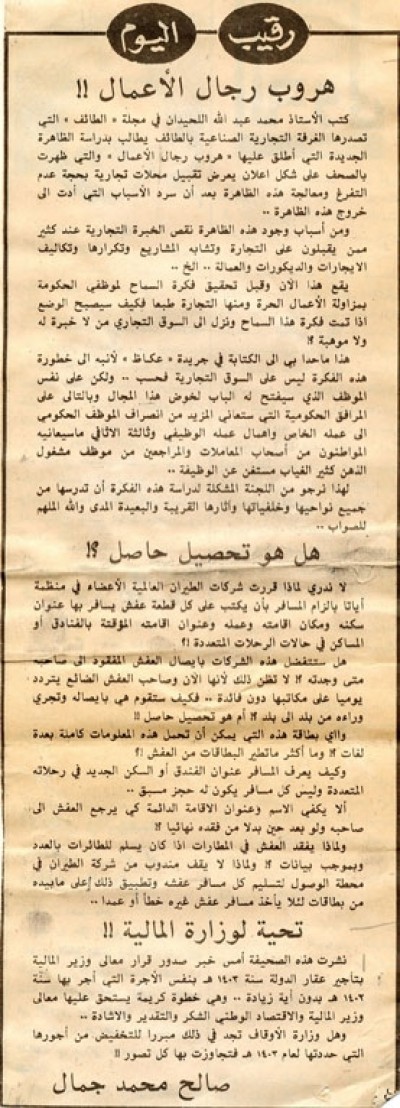 رقيب اليوم
هروب رجال الأعمال !!
كتب الأستاذ محمد عبد الله اللحيدان في مجلة « الطائف » التي
تصدرها الغرفة التجارية الصناعية بالطائف يطالب بدراسة الظاهرة
الجديدة التي أطلق عليها « هروب رجال الأعمال » والتي ظهرت
بالصحف على شكل اعلان يعرض تقبيل محلات تجارية بحجة عدم
التفرغ ومعالجة هذه الظاهرة بعد أن سرد الأسباب التي أدت الى
خروج هذه الظاهرة ..
ومن أسباب وجود هذه الظاهرة نقص الخبرة التجارية عند كثير
ممن يقبلون على التجارة وتشابه المشاريع وتكرارها وتكاليف
الايجارات والديكورات والعمالة .. الخ ..
يقع هذا الآن وقبل تحقيق فكرة السماح لموظفي الحكومة
بمزاولة الأعمال الحرة ومنها التجارة طبعا فكيف سيصبح الوضع
اذا تمت فكرة هذا السماح ونزل الى السوق التجاري من لا خبرة له
ولا موهبة ؟!
هذا ماحدا بي الى الكتابة في جريدة « عكاظ » لأنبه الى خطورة
هذه الفكرة ليس على السوق التجارية فحسب .. ولكن على نفس
الموظف الذي سيفتح له الباب لخوض هذا المجال وبالتالى على
المرافق الحكومية التي ستعاني المزيد من انصراف الموظف الحكومي
الى عمله الخاص واهمال عمله الوظيفي وثالثة الاثافي ماسيعانيه
المواطنون من أصحاب المعاملات والمراجعين من موظف مشغول
الذهن كثير الغياب مستغن عن الوظيفة ..
لهذا نرجو من اللجنة المشكلة لدراسة هذه الفكرة أن تدرسها من
جميع نواحيها وخلفياتها وآثارها القريبة والبعيدة المدى والله الملهم
للصواب ..
هل هو تحصيل حاصل ؟!
لا ندري لماذا قررت شركات الطيران العالمية الأعضاء في منظمة
أياتا بالزام المسافر بأن يكتب على كل قطعة عفش يسافر بها عنوان
سكنه ومكان اقامته وعمله وعنوان اقامته المؤقتة بالفنادق أو
المساكن في حالات الرحلات المتعددة ؟!
هل ستتفضل هذه الشركات بايصال العفش المفقود الى صاحبه
متى وجدته ؟! لا تظن ذلك لأنها الآن وصاحب العفش الضائع يتردد
يوميا على مكاتبها دون فائدة .. فكيف ستقوم هي بايصاله وتجري
وراءه من بلد الى بلد ؟! أم هو تحصيل حاصل !!
وأي بطاقة هذه التي يمكن أن تحمل هذه المعلومات كاملة بعدة
لغات ؟! وما أكثر ماتطير البطاقات من العفش !؟
وكيف يعرف المسافر عنوان الفندق أو السكن الجديد في رحلاته
المتعددة وليس كل مسافر يكون له حجز مسبق ..
ألا يكفي الاسم وعنوان الاقامة الدائمة كي يرجع العفش الى
صاحبه ولو بعد حين بدلا من فقده نهائيا ؟!
ولماذا يفقد العفش في المطارات اذا كان يسلم للطائرات بالعدد
وبموجب بيانات ؟! ولماذا لا يقف مندوب من شركة الطيران في
محطة الوصول لتسليم كل مسافر عفشه وتطبيق ذلك على مابيده
من بطاقات لئلا يأخذ مسافر عفش غيره خطأ أو عمدا ..
تحية لوزارة المالية !!
نشرت هذه الصحيفة أمس خبر صدور قرار معالى وزير المالية
بتأجير عقار الدولة سنة ١٤٠٣ هـ بنفس الأجرة التي أجر بها سنة
١٤٠٢ هـ بدون أية زيادة .. وهي خطوة كريمة يستحق عليها معالى
وزير المالية والاقتصاد الوطني الشكر والتقدير والاشادة ..
وهل وزارة الأوقاف تجد في ذلك مبررا للتخفيض من أجورها
التي حددتها لعام ١٤٠٣ هـ فتجاوزت بها كل تصور !!
صالح محمد جمال